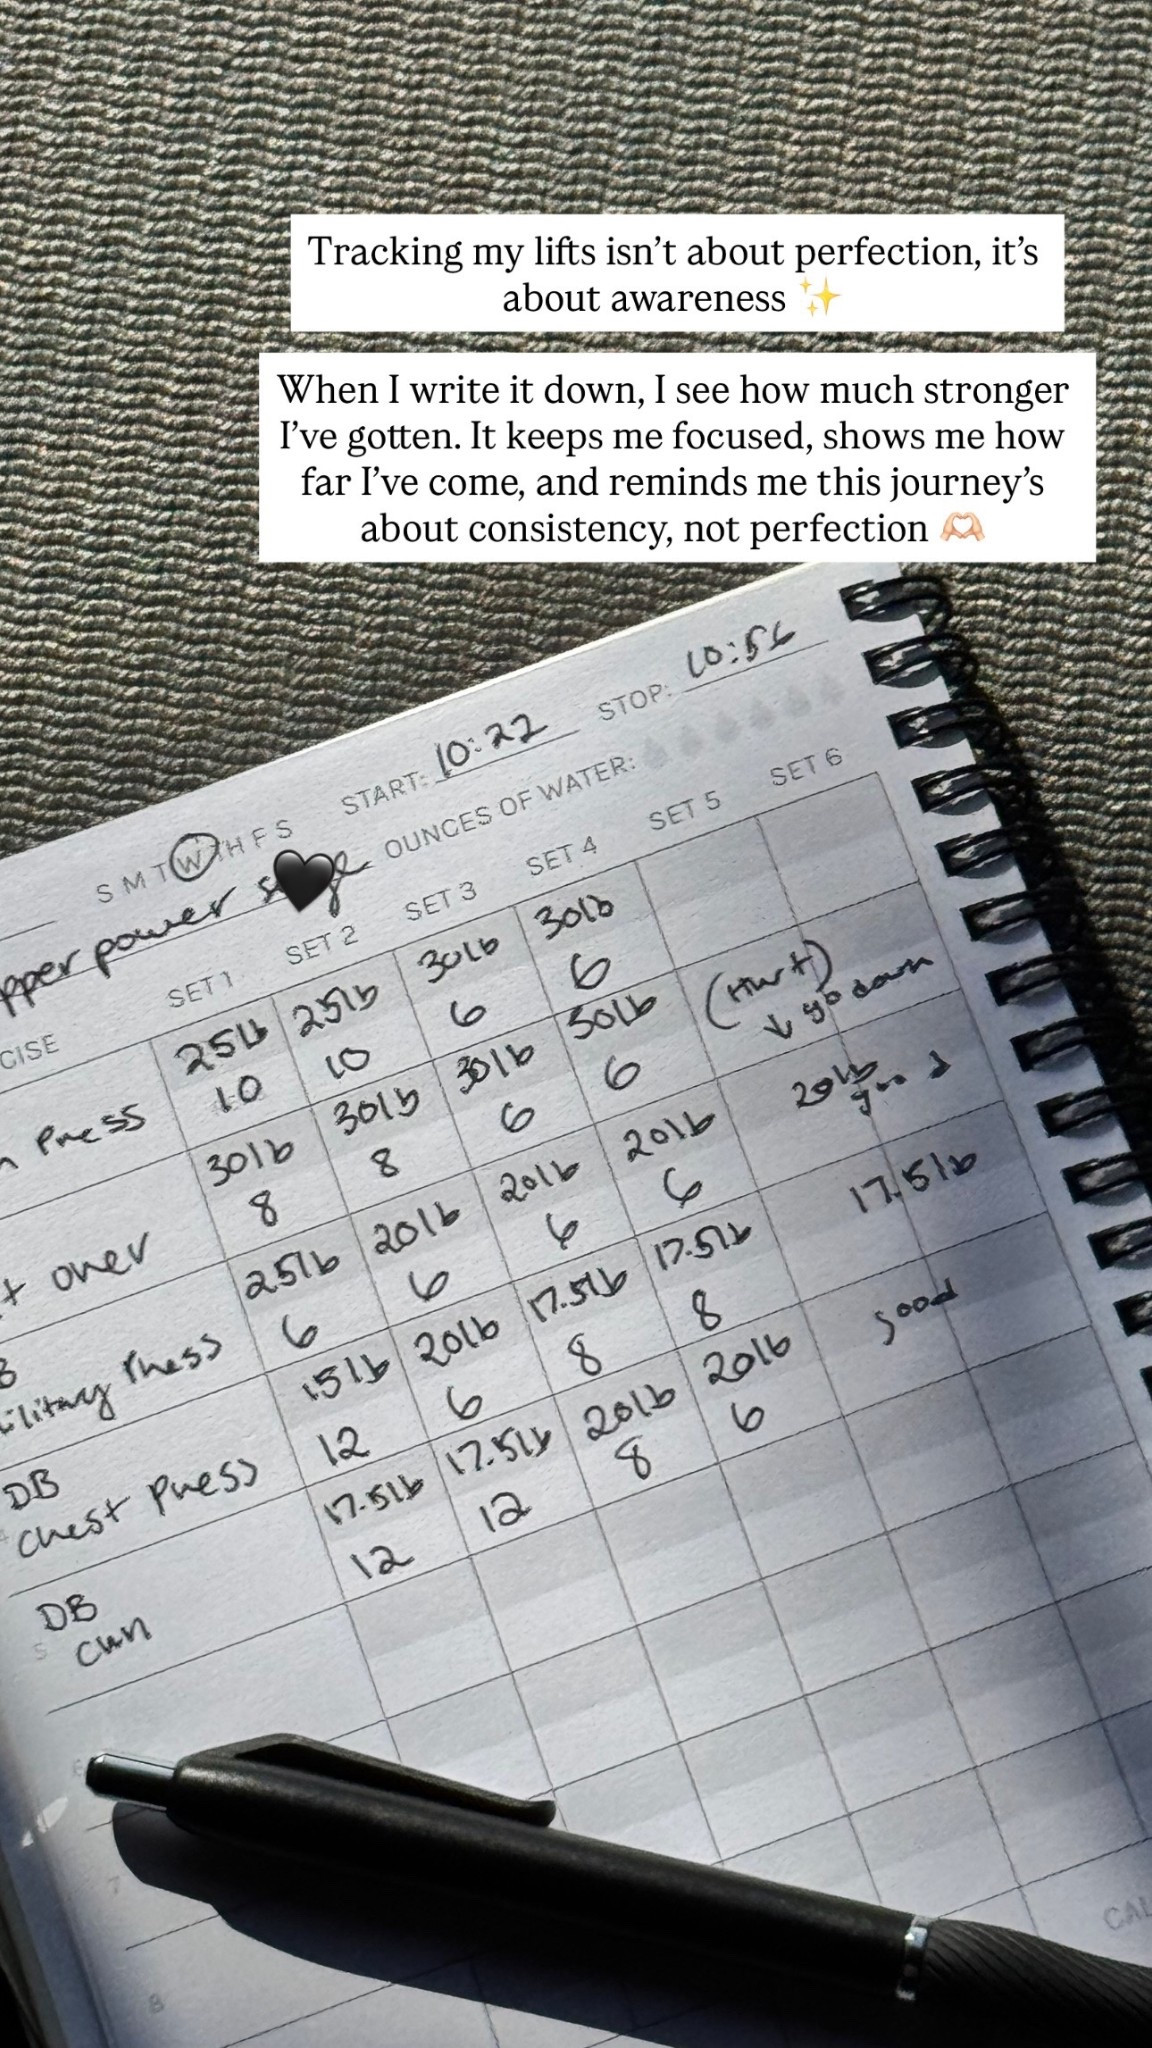 Tracking my lifts isn’t about perfection, it’s
about awareness ✨
When I write it down, I see how much stronger
I’ve gotten. It keeps me focused, shows me how
far I’ve come, and reminds me this journey’s
about consistency, not perfection 🫶🏻
S M T W TH F S START: 10:22 STOP: 10:56
pper power OUNCES OF WATER:
CISE SET 1 SET 2 SET 3 SET 4 SET 5 SET 6
25lb 25lb 30lb 30lb
Press 10 10 6 6
30lb 30lb 30lb 30lb (Hurt)
t over 8 8 6 6 ↓ go down
25lb 20lb 20lb 20lb 20lb
ilitary Press 6 6 6 6 good
DB 15lb 20lb 17.5lb 17.5lb 17.5lb
Chest Press 12 6 8 8
DB 17.5lb 17.5lb 20lb 20lb good
curl 12 12 8 6
5
6
7
8
CAL